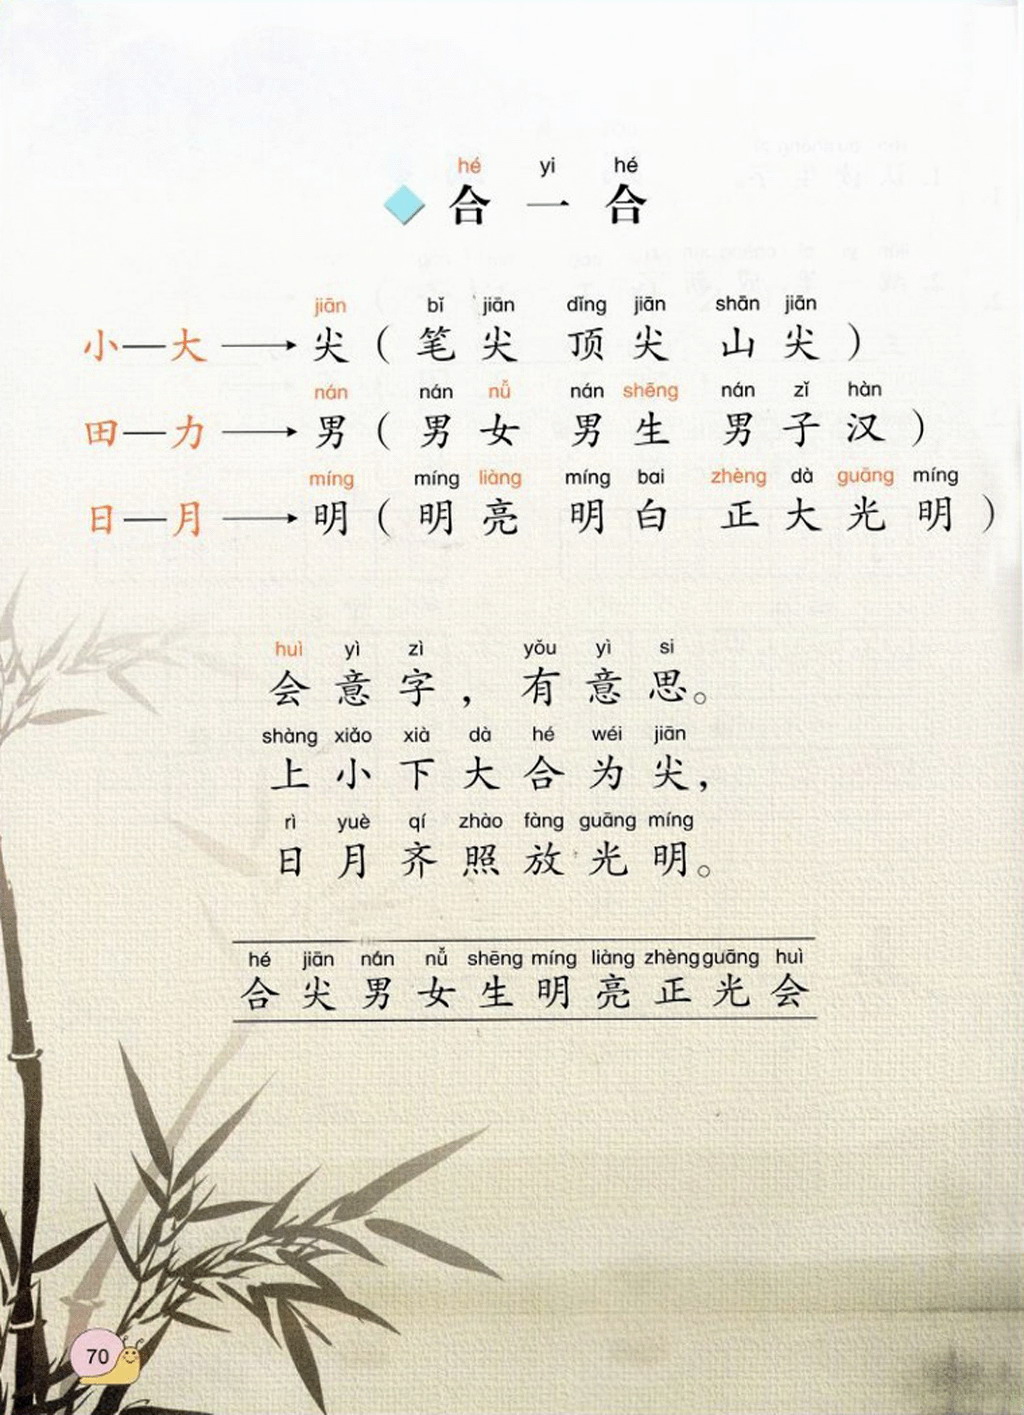 hé yi hé
合一合
jiān bǐ jiān dǐng jiān shān jiān
小—大→尖(笔尖 顶尖 山尖)
nán nán nǚ nán shēng nán zǐ hàn
田—力→男(男女 男生 男子汉)
míng míng liàng míng bai zhèng dà guāng míng
日—月→明(明亮 明白 正大光明)
huì yì zì yǒu yì si
会意字,有意思。
shàng xiǎo xià dà hé wéi jiān
上小下大合为尖,
rì yuè qí zhào fàng guāng míng
日月齐照放光明。
hé jiān nán nǚ shēng míng liàng zhèng guāng huì
合尖男女生明亮正光会
70